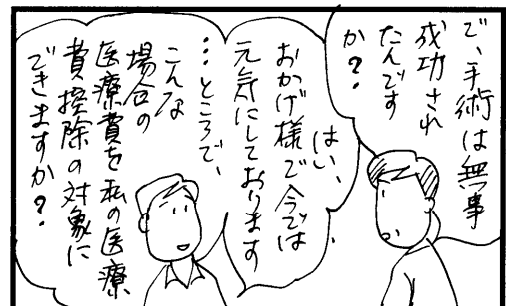 で、手術は無事
成功され
たんです
か？
はい、
おかげ様で今では
元気にしております
…ところで、
こんな
場合の
医療費を私の医療
費控除の対象に
できますか？